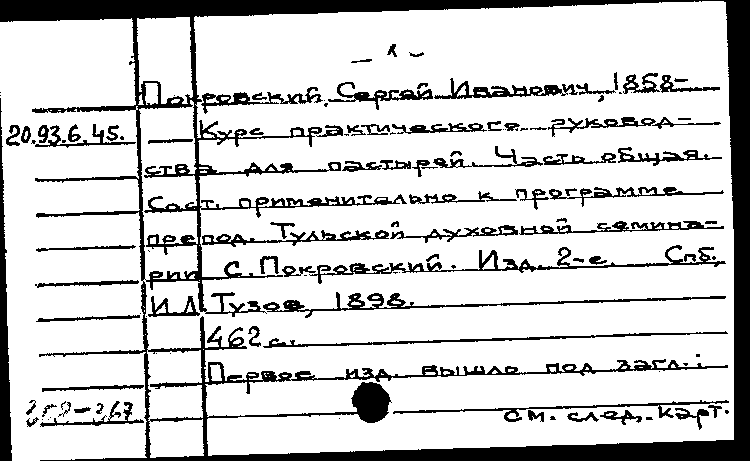 - 1 -
Покровский, Сергей Иванович, 1858-
20.93.6.45. Курс практического руковод-
ства для пастырей. Часть общая.
Сост. применительно к программе
препод. Тульской духовной семина-
рии С. Покровский. Изд. 2-е. Спб,
И.Л. Тузов, 1898.
462 с.
Первое изд. вышло под загл.:
см. след. карт.